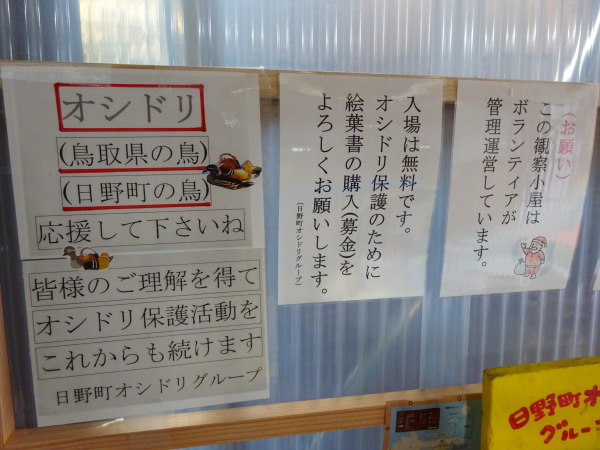 オシドリ
(鳥取県の鳥)
(日野町の鳥)
応援して下さいね
皆様のご理解を得て
オシドリ保護活動を
これからも続けます
日野町オシドリグループ
入場は無料です。
オシドリ保護のために
絵葉書の購入(募金)を
よろしくお願いします。
(日野町オシドリグループ)
(お願い)
この観察小屋は
ボランティアが
管理運営しています。
日野町オ
グルー